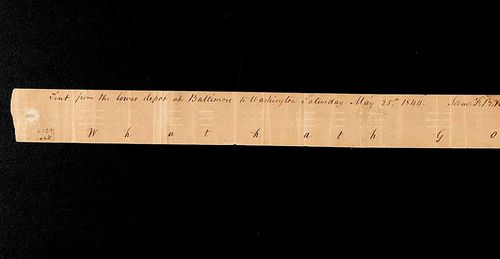 Sent from the lower depot at Baltimore to Washington Saturday May 25th 1844. Sam. F. B.
W h a t h a t h G o